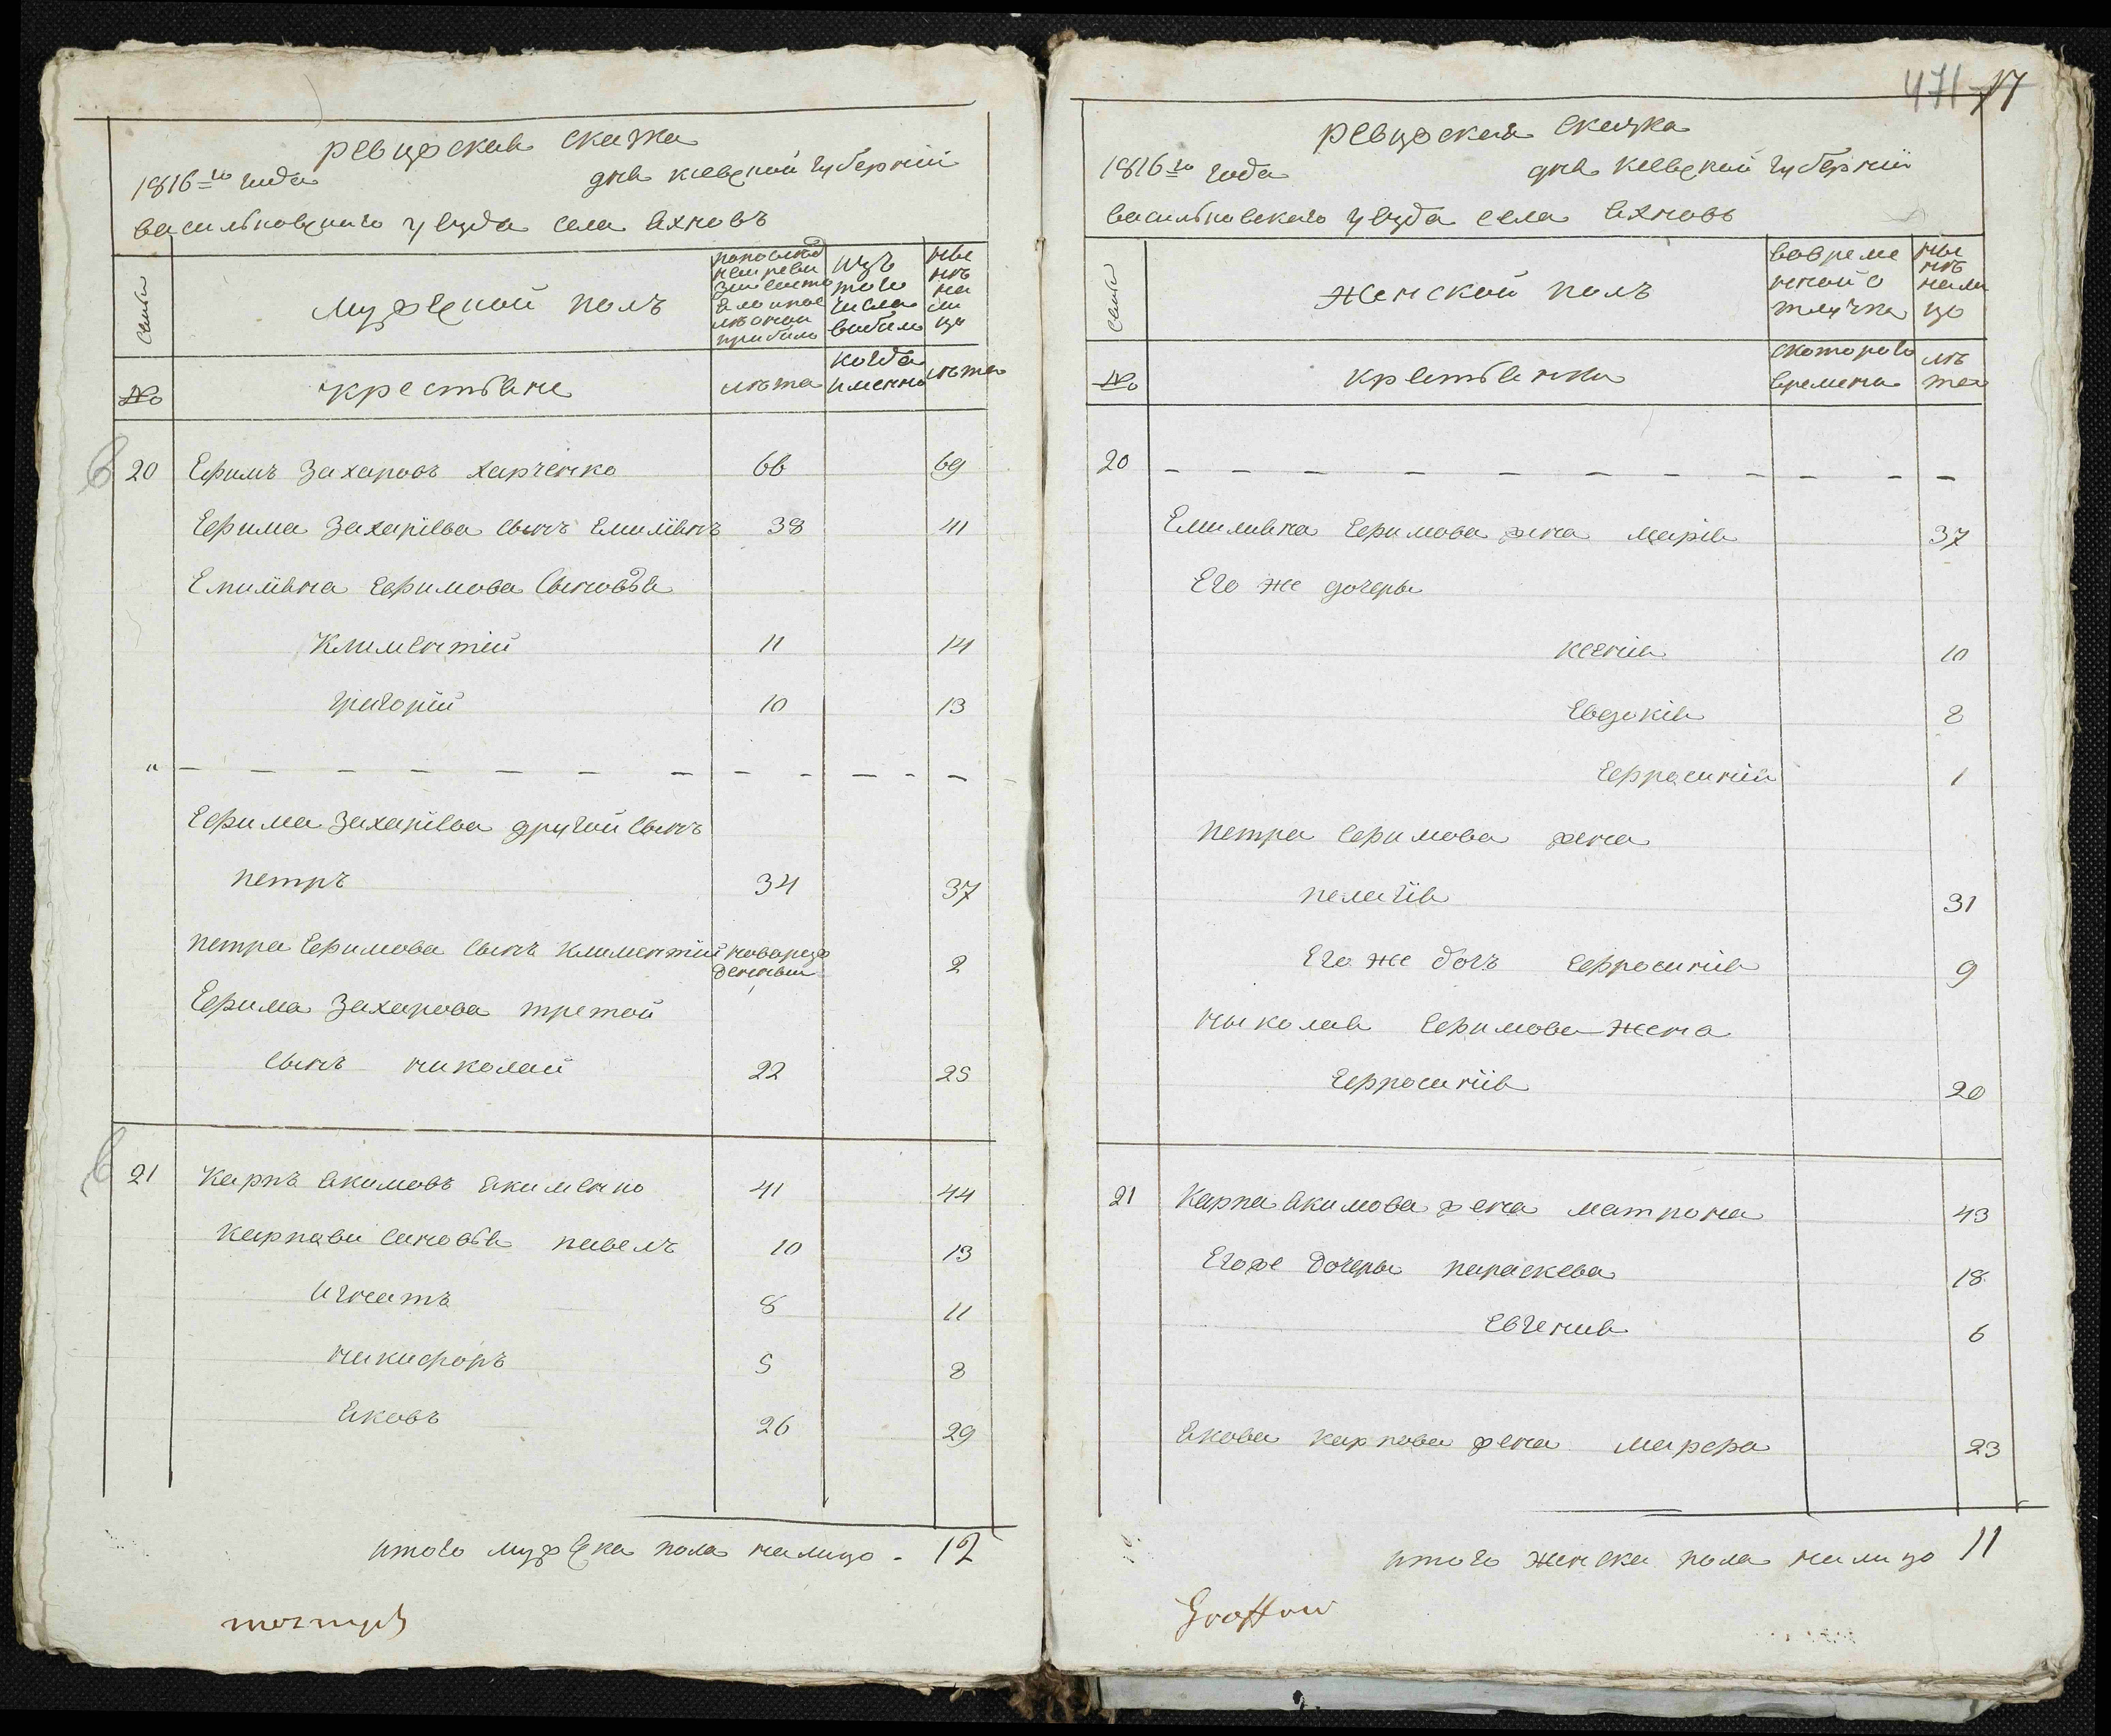 ревизская сказка
1816=го года дня киевской губернии
васильковского уезда села Яхновъ
семьи
мужеской полъ
попоследней ревизии состояло и после оной прибыло
изъ того числа выбыло
ныне на лицо
№
крестьяне
лета
когда именно
лета
20 Ефимъ Захаровъ харченко 66 69
Ефима Захаріева сынъ Емиліянъ 38 41
Емиліяна Ефимова Сыновья
Климентій 11 14
григорій 10 13
" — — — — — — — — — — — —
Ефима Захаріева другой сынъ
петръ 34 37
петра Ефимова сынъ климентій новорожденный 2
Ефима Захарова третой
сынъ николай 22 25
21 Карпъ Якимовъ Якименко 41 44
Карпови синовья павелъ 10 13
игнатъ 8 11
никифоръ 5 8
Яковъ 26 29
итого мужеска пола налицо - 12
471 17
ревизская сказка
1816=го года дня киевской губерніи
васильковского уезда села Яхновъ
семьи
женской полъ
вовременной отлучке
ныне налицо
№
крестьянки
скоторого времени
лета
20 — — — — — — — — — — —
Емилияна Ефимова жена марія 37
Его же дочеры
ксенія 10
Евдокія 8
Ефросинии 1
петра Ефимова жена
пелагія 31
Его же дочь Ефросинія 9
ныколая Ефимова жена
Ефросинія 20
21 Карпа Якимова жена матрона 43
Егоже дочеры параскева 18
Евгения 6
Якова карпова жена марфа 23
итого женска пола налицо 11